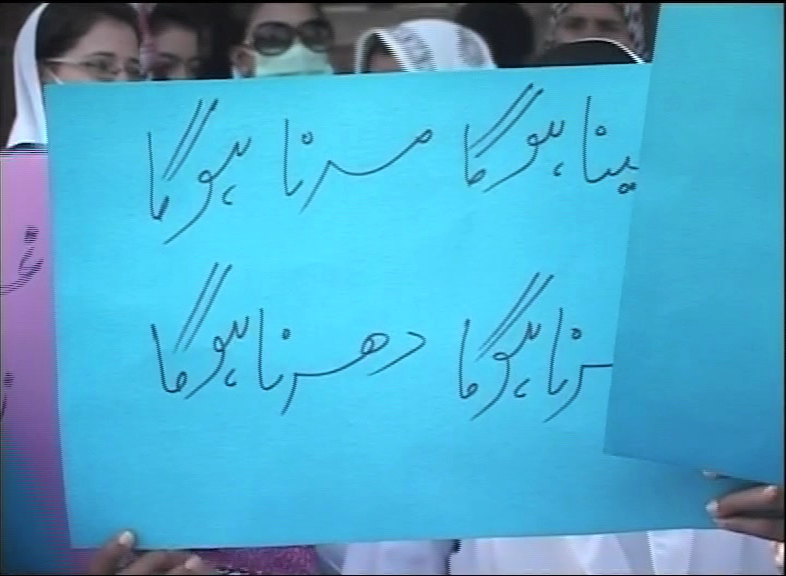 ہوگا مرنا ہوگا
ہوگا دھرنا ہوگا